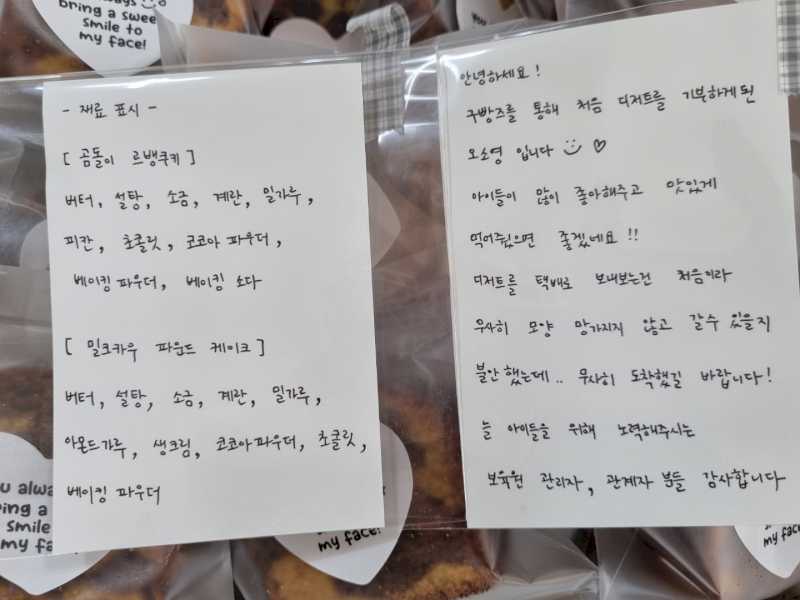 always
bring a swee
smile to
my face!
you
- 재료 표시 -
[ 곰돌이 르뱅쿠키 ]
버터, 설탕, 소금, 계란, 밀가루,
피칸, 초콜릿, 코코아 파우더,
베이킹 파우더, 베이킹 소다
[ 밀크카우 파운드 케이크 ]
버터, 설탕, 소금, 계란, 밀가루,
아몬드가루, 생크림, 코코아파우더, 초콜릿,
베이킹 파우더
안녕하세요!
구빵즈를 통해 처음 디저트를 기부하게된
오소영 입니다
아이들이 많이 좋아해주고 맛있게
먹어줬으면 좋겠네요!!
디저트를 택배로 보내보는건 처음이라
무사히 모양 망가지지 않고 갈수 있을지
불안했는데.. 무사히 도착했길 바랍니다!
늘 아이들을 위해 노력해주시는
보육원 관리자, 관계자 분들 감사합니다
u alwa
ring a
smile
my fa
my face!